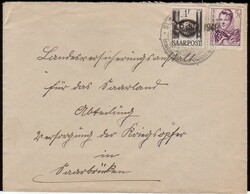 SAARPOST
Landesversicherungsanstalt
für das Saarland
Abteilung
Versorgung der Kriegsopfer
in
Saarbrücken